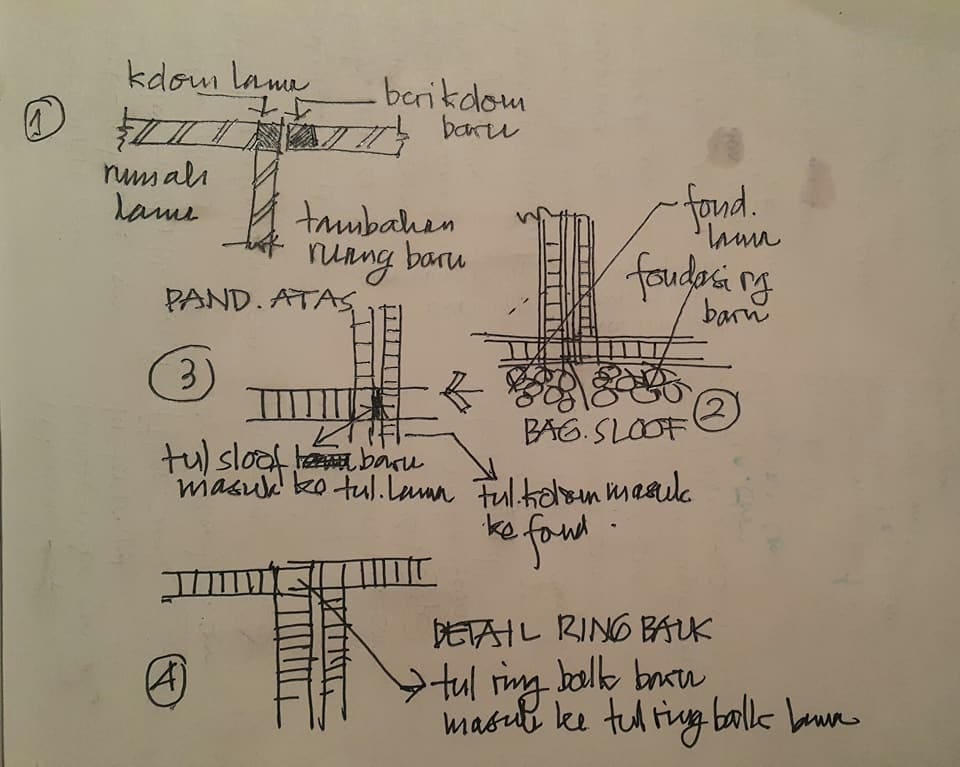 1
kolom lama
beri kolom
baru
rumah
lama
tambahan
ruang baru
fond.
lama
fondasi rg
baru
2
BAG. SLOOF
PAND. ATAS
3
tul sloof baru
masuk ke tul. lama
tul. kolom masuk
ke fond.
4
DETAIL RING BALK
tul ring balk baru
masuk ke tul ring balk lama